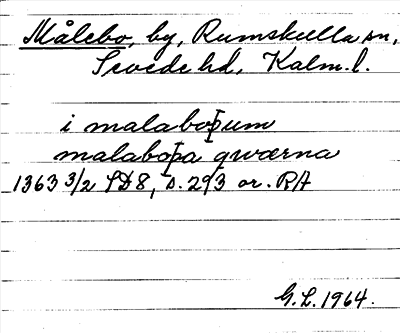 Målebo, by, Rumskulla sn,
Sevede hd, Kalm. l.
i malaboþum
malaboþa qwærna
1363 3/2 SD8, s. 293 or. RA
G.L. 1964.